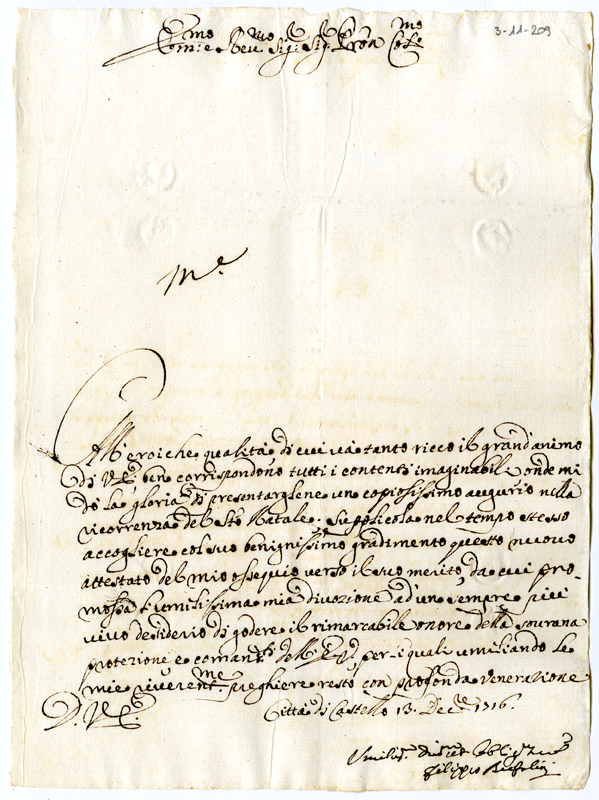 3-11-209
Em:e Rev. Sig: Sig: Pron Col:mo
All'eroiche qualità di cui và tanto ricco il grand'animo
di V.E. ben corrispondono tutti i contenti imaginabili, onde mi
dò la gloria di presentarglene un copiosissimo augurio nella
ricorrenza del Sto Natale. Supplicola nel tempo stesso
accogliere col suo benignissimo gradimento questo nuovo
attestato del mio ossequio verso il suo merito, da cui pro-
mossa l'umilissima mia divozione ad un sempre più
vivo desiderio di godere il rimarcabile onore della sovrana
protezione e comandi dell'E.V. per i quali umiliando le
mie riverentme preghiere resto con profonda venerazione
D. V.E.
Città di Castello 13. Dece 1716.
Filippo